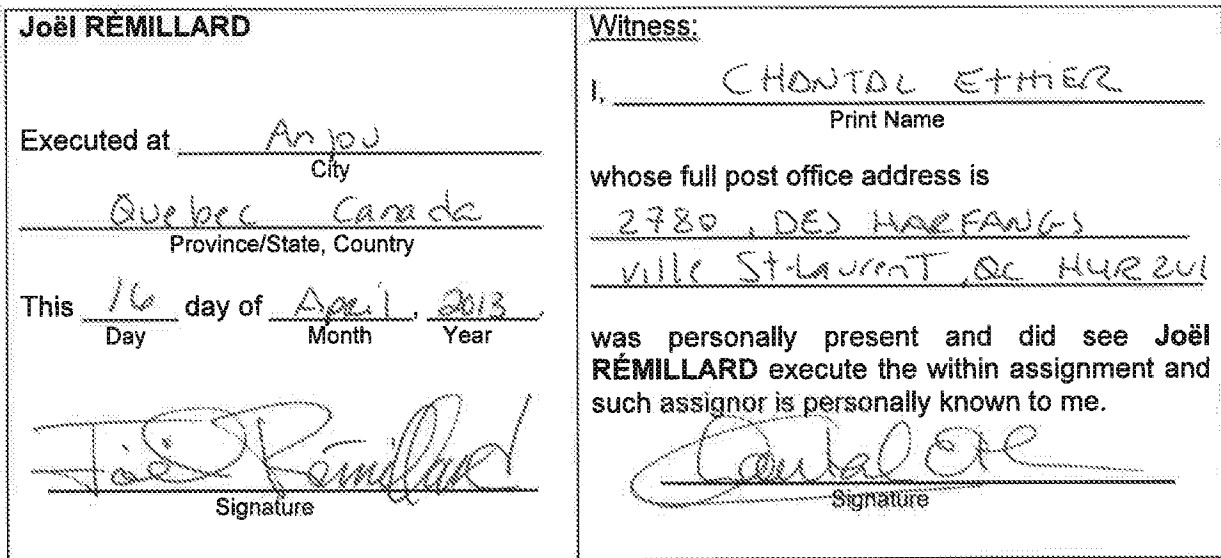 Joël RÉMILLARD
Executed at Anjou
City
Quebec Canada
Province/State, Country
This 16 day of April, 2013.
Day Month Year
Joël Rémillard
Signature
Witness:
I, CHANTAL ETHIER
Print Name
whose full post office address is
2780, DES HARFANGS
Ville St-Laurent, Qc H4R 2W1
was personally present and did see Joël
RÉMILLARD execute the within assignment and
such assignor is personally known to me.
Signature